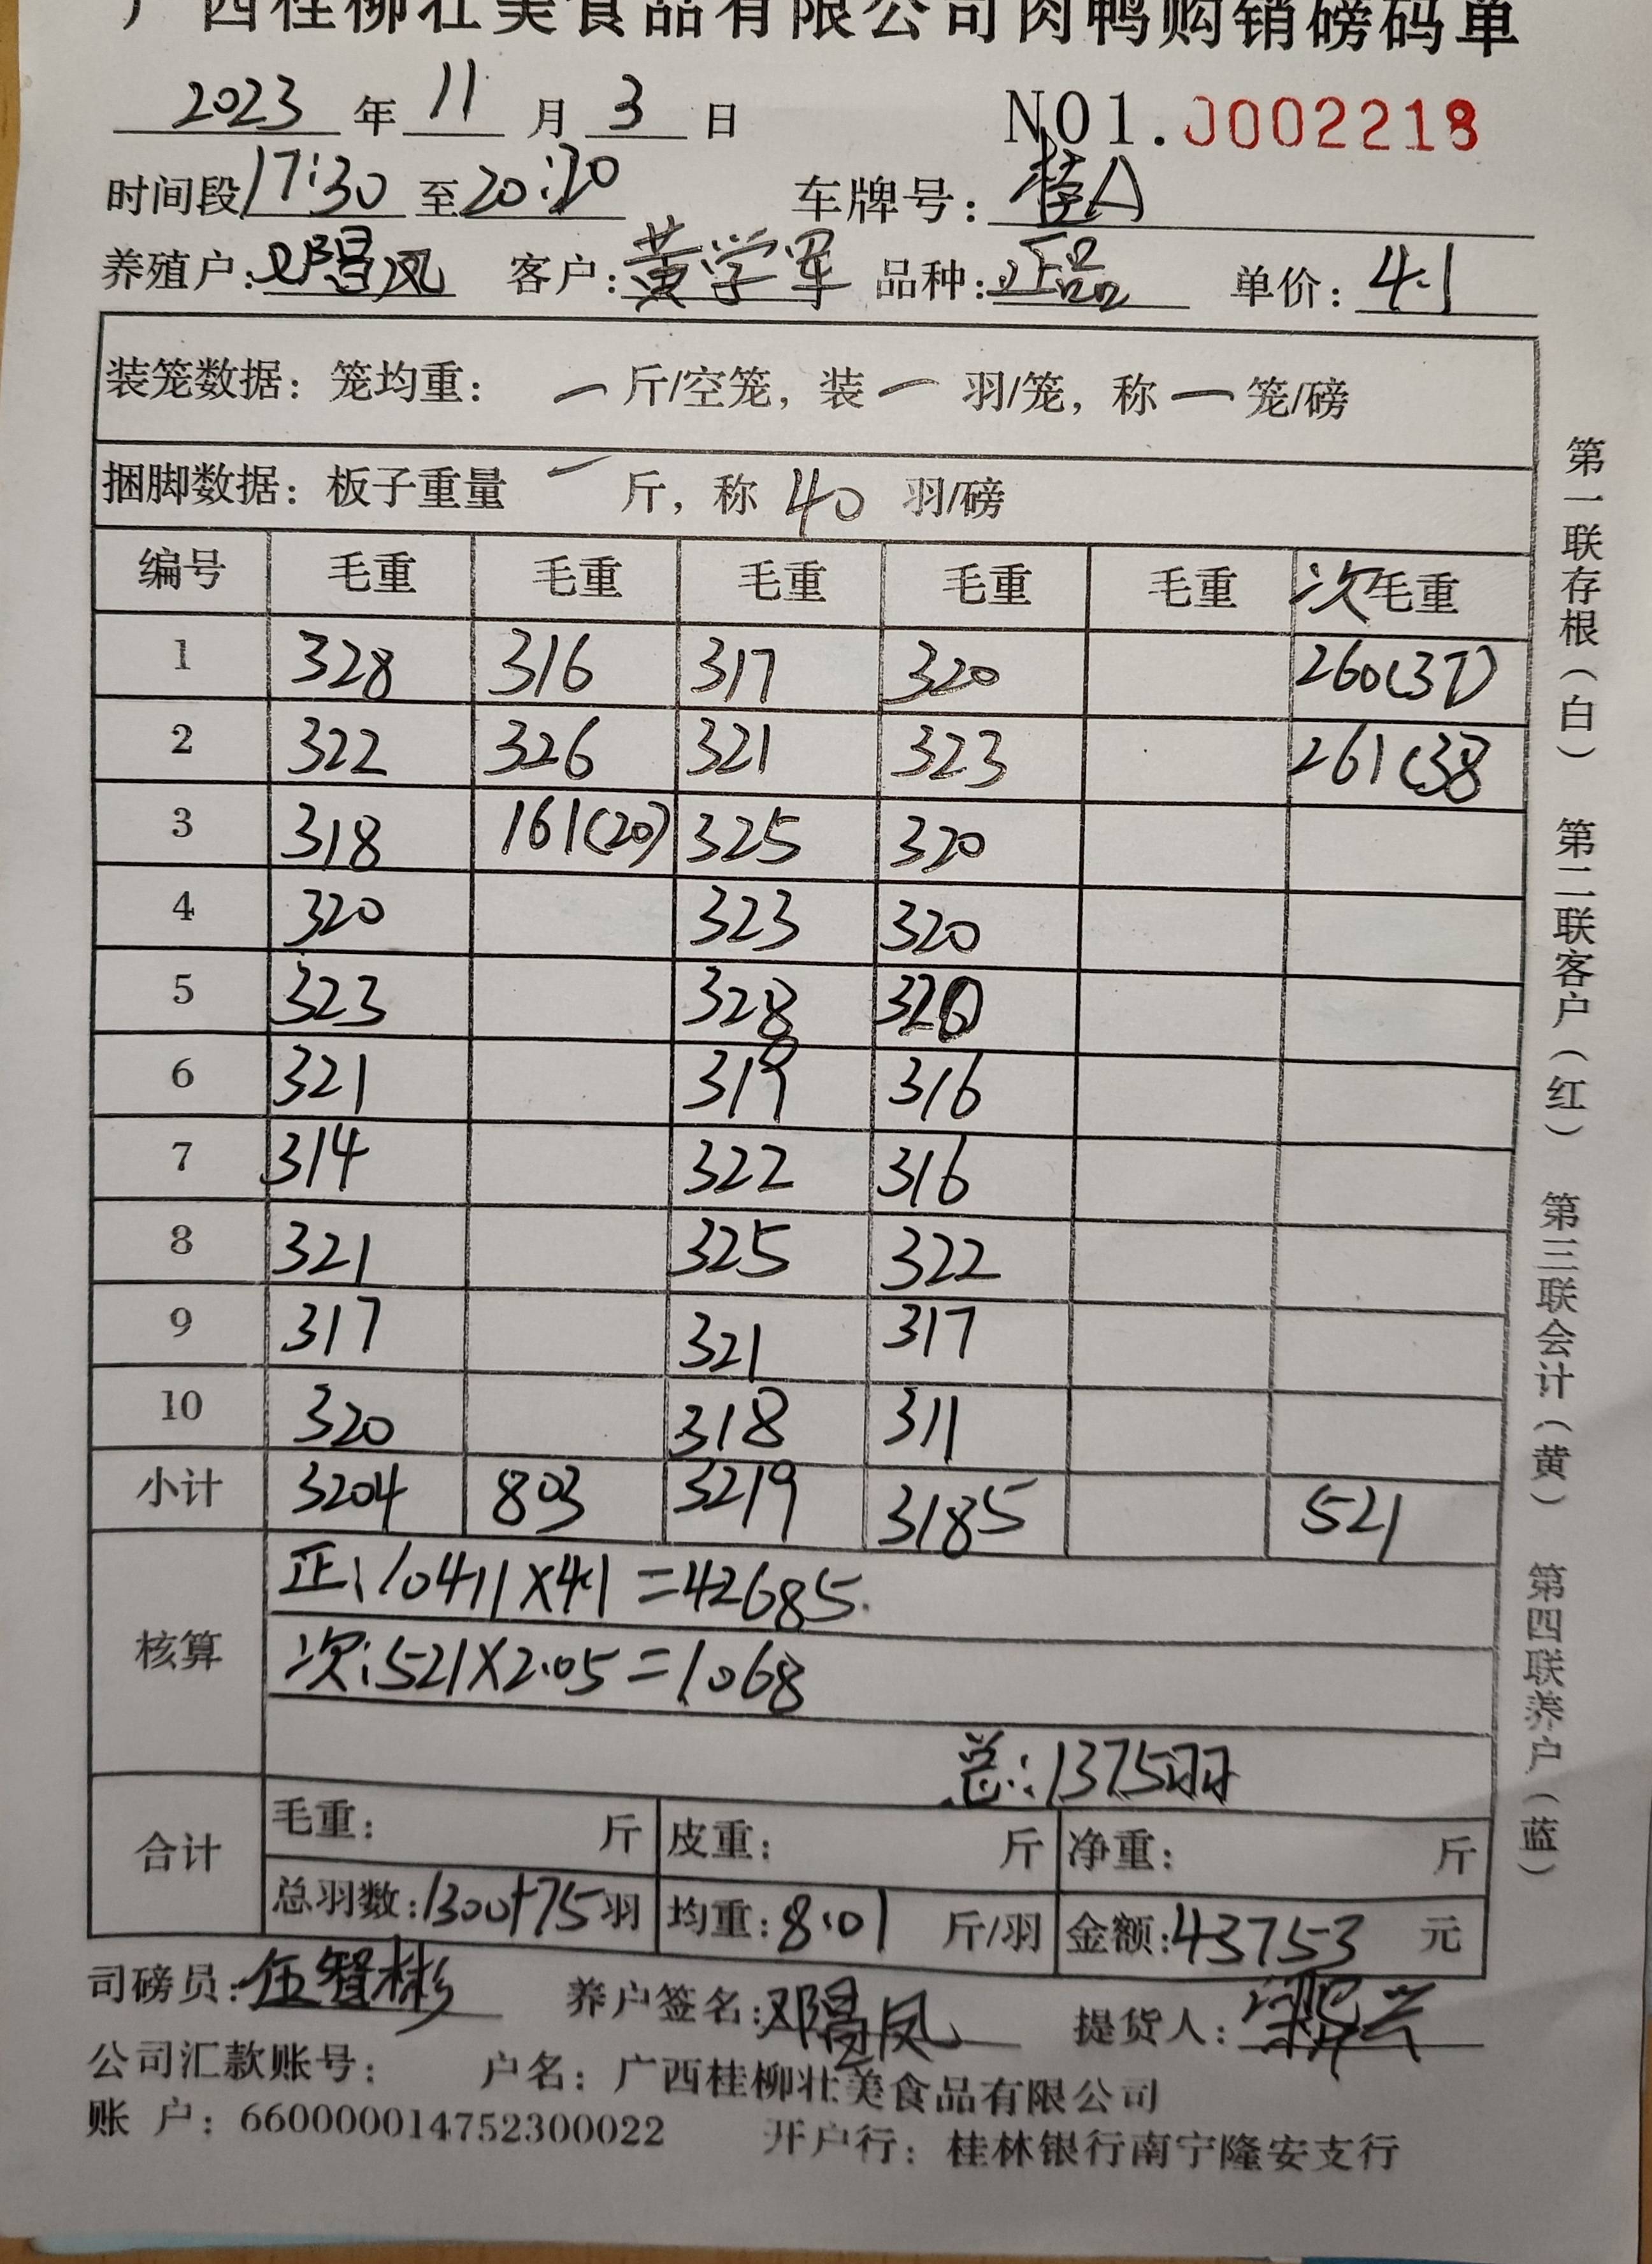 广西桂柳壮美食品有限公司肉鸭购销磅码单
2023 年 11 月 3 日 NO1.0002218
时间段 17:30 至 20:20 车牌号: 桂A
养殖户: 邓昌凤 客户: 黄学军 品种: 正品 单价: 4.1
装笼数据: 笼均重: 一 斤/空笼, 装 一 羽/笼, 称 一 笼/磅
捆脚数据: 板子重量 一 斤, 称 40 羽/磅
编号 毛重 毛重 毛重 毛重 毛重 次毛重
1 328 316 317 320 260(37)
2 322 326 321 323 261(38
3 318 161(20) 325 320
4 320 323 320
5 323 328 320
6 321 319 316
7 314 322 316
8 321 325 322
9 317 321 317
10 320 318 311
小计 3204 803 3219 3185 521
核算 正:10411×4.1=42685.
次:521×2.05=1068
总:1375羽
合计 毛重: 斤 皮重: 斤 净重: 斤
总羽数:1300+75羽 均重:8.01 斤/羽 金额:43753 元
司磅员: 伍智彬 养户签名: 邓昌凤 提货人:
公司汇款账号: 户名: 广西桂柳壮美食品有限公司
账 户: 660000014752300022 开户行: 桂林银行南宁隆安支行
第一联存根(白) 第二联客户(红) 第三联会计(黄) 第四联养户(蓝)